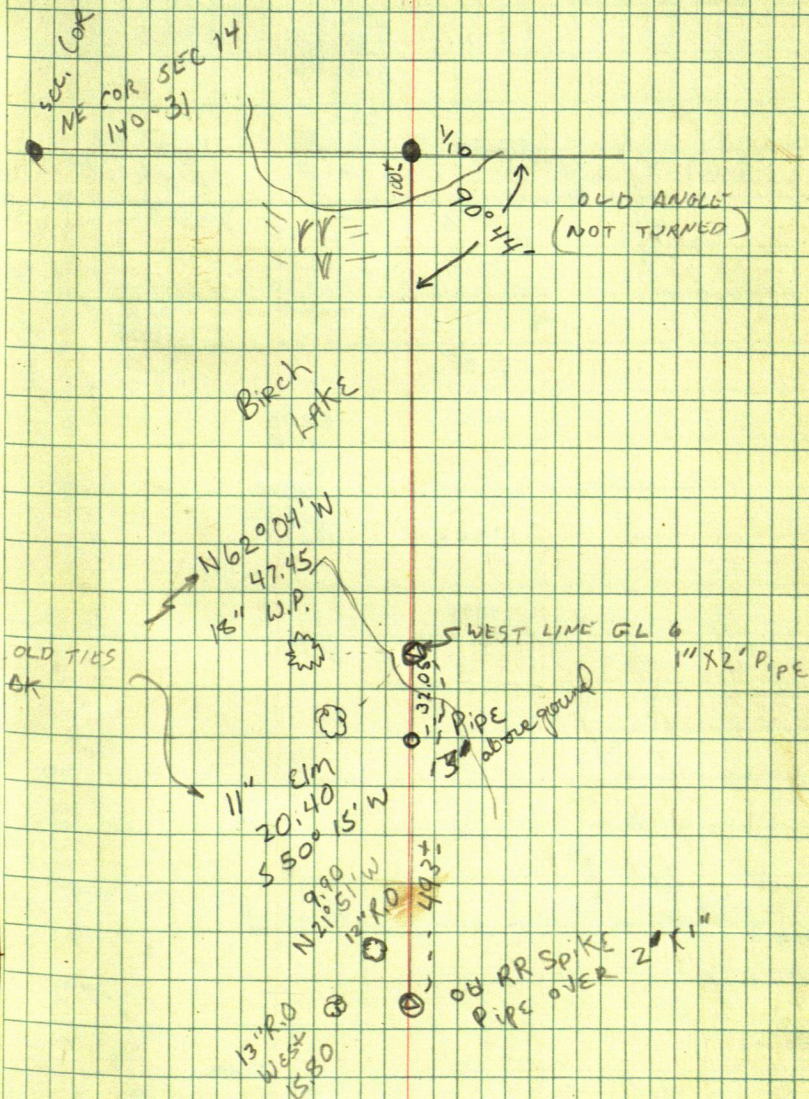 SEC. COR
NE COR SEC 14
140-31
1/16
100±
90° 44'
OLD ANGLE
(NOT TURNED)
BiRCH
LAKE
N 62° 04' W
47.45
18" W.P.
OLD TIES
OK
WEST LINE GL 6
1" X 2' PipE
32.05
PipE
above ground
11" Elm
20.40
S 50° 15' W
493±
9.90
N 21° 51' W
12" R.O
Old RR SpikE
PipE OVER 2" X 1"
13" R.O
West
15.80